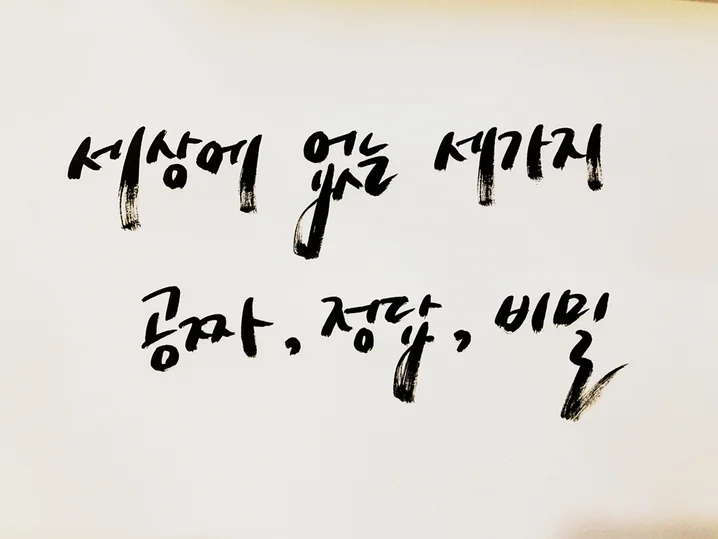 세상에 없는 세가지
공짜, 정답, 비밀